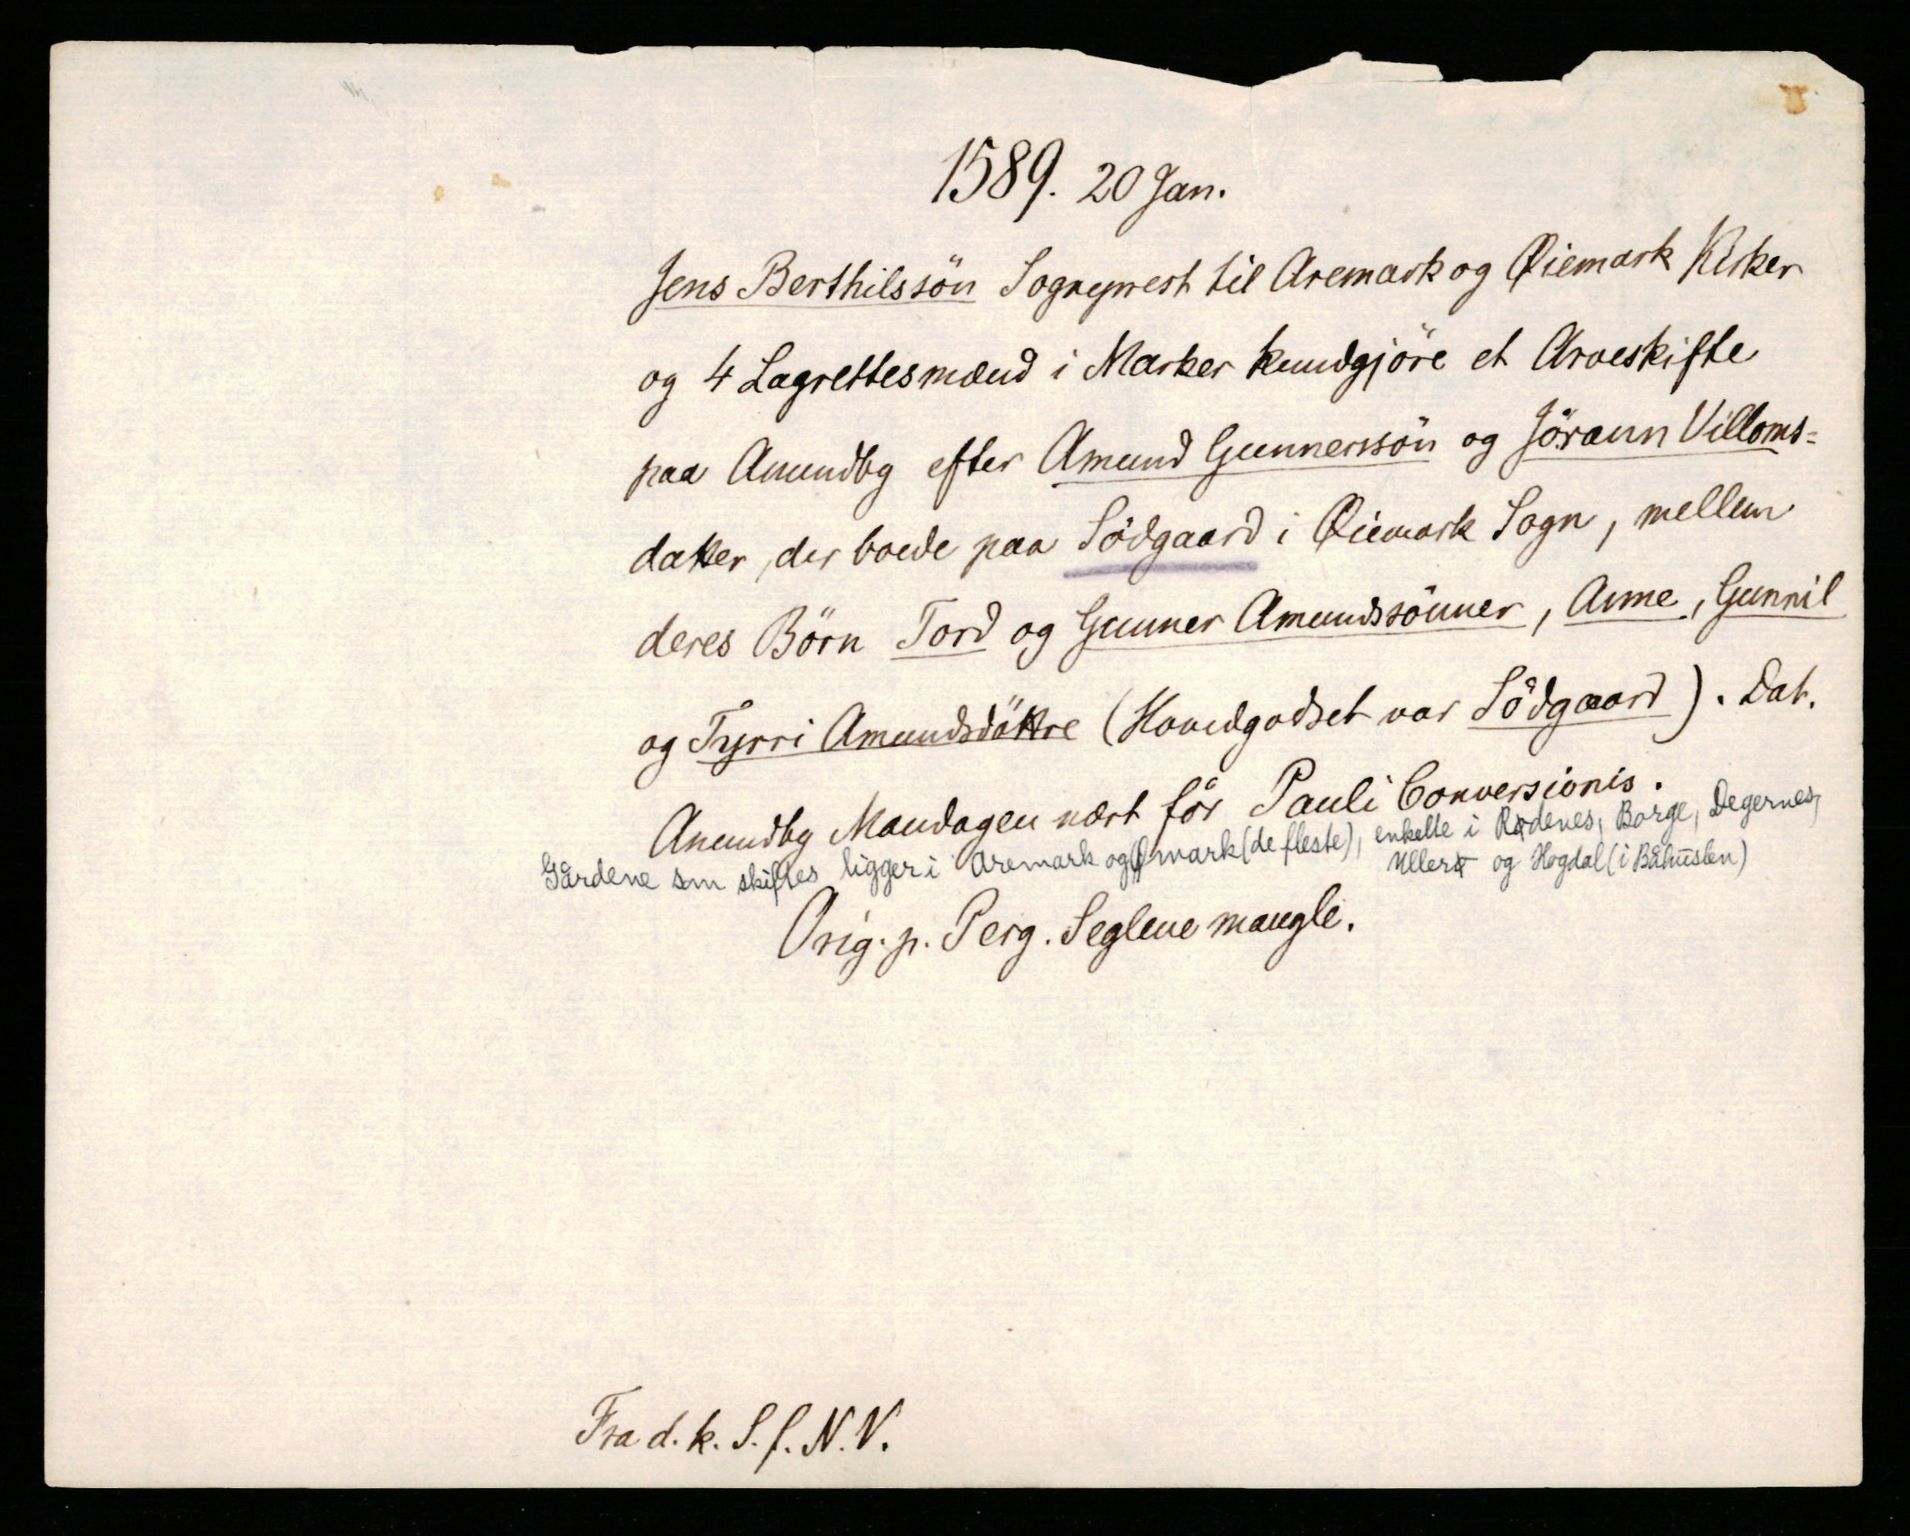 1589. 20 Jan.
Jens Berthilssön Sogneprest til Aremark og Øiemark Kirker
og 4 Lagrettesmænd i Marker kundgjöre et Arveskifte
paa Anundby efter Amund Gunnerssön og Jörann Villoms-
datter, der boede paa Södgaard i Øiemark Sogn, mellem
deres Börn Tord og Gunner Amundssönner, Anne, Gunnil
og Tyrri Amundsdöttre (Hovedgodset var Södgaard). Dat.
Anundby Mandagen næst för Pauli Conversionis.
Gårdene som skiftes ligger i Aremark og Ømark (de fleste), enkelte i Rødenes, Borge, Degernes,
Ullerø og Hogdal (i Båhuslen)
Orig. p. Perg. Seglene mangle.
Fra d. k. S. f. N. V.